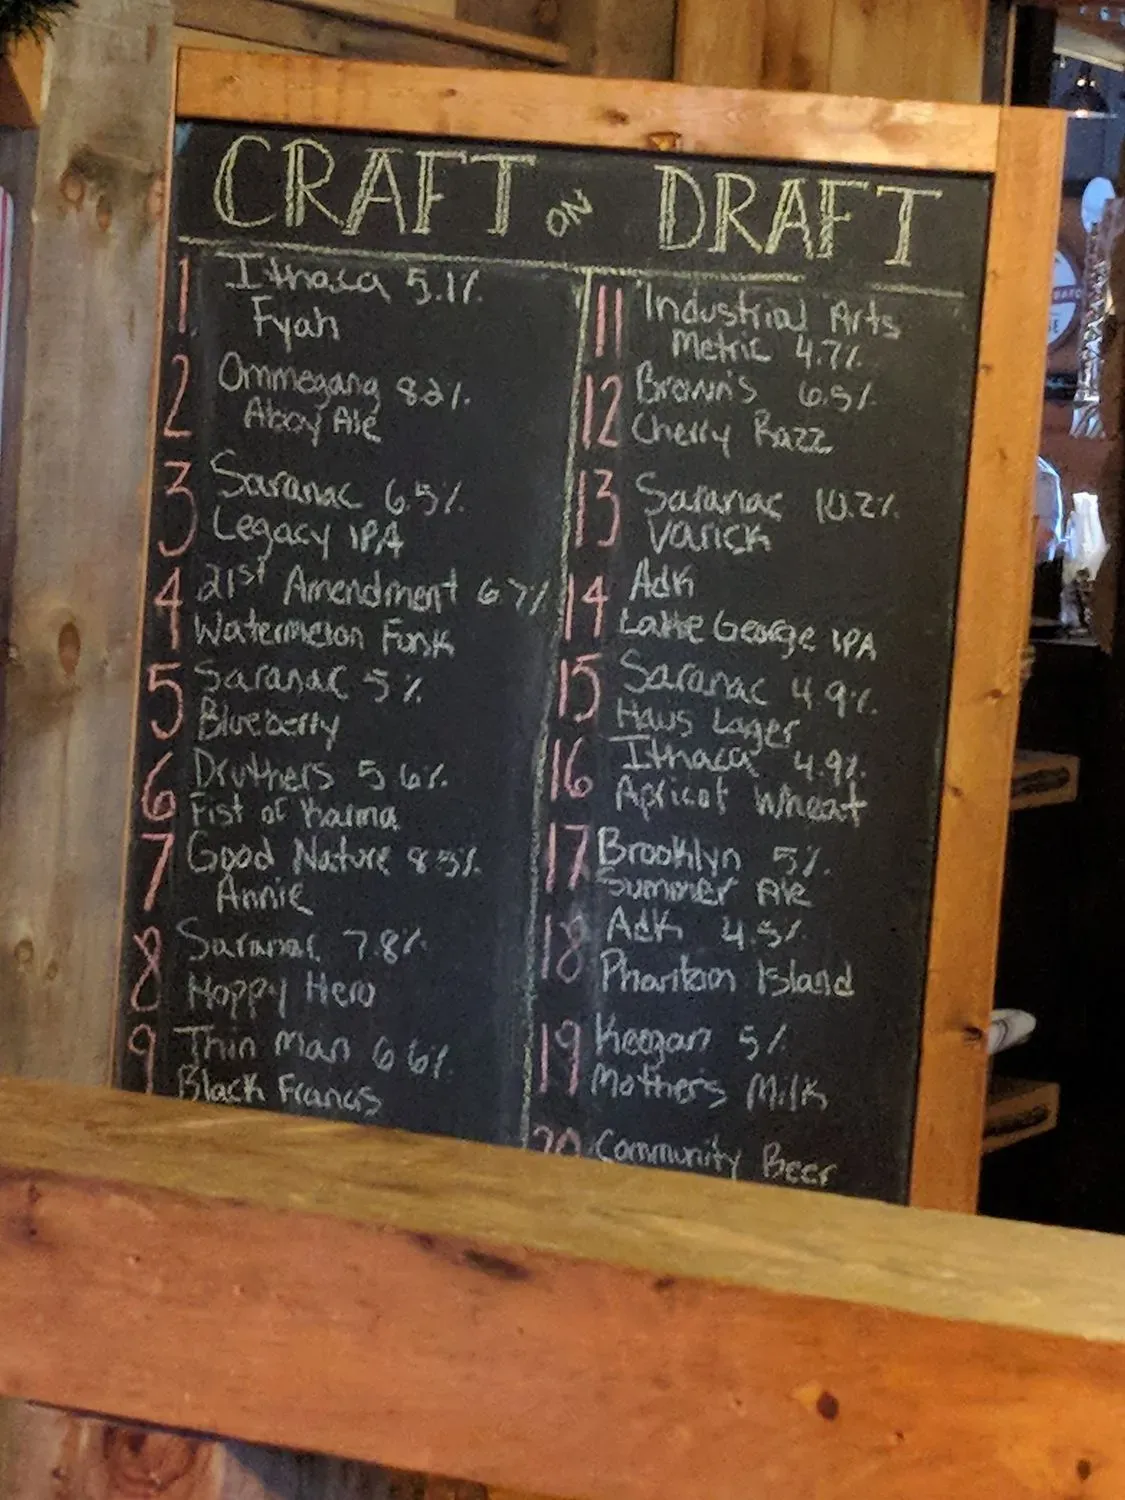 CRAFT ON DRAFT
1 Ithaca 5.1%
Fyah
2 Ommegang 8.2%
Abby Ale
3 Saranac 6.5%
Legacy IPA
4 21st Amendment 6.7%
Watermelon Funk
5 Saranac 5%
Blueberry
6 Druthers 5.6%
Fist of Karma
7 Good Nature 8.5%
Annie
8 Saranac 7.8%
Hoppy Hero
9 Thin Man 6.6%
Black Francis
11 Industrial Arts
Metric 4.7%
12 Brown's 6.5%
Cherry Razz
13 Saranac 10.2%
Varick
14 Adk
Lake George IPA
15 Saranac 4.9%
Haus Lager
16 Ithaca 4.9%
Apricot Wheat
17 Brooklyn 5%
Summer Ale
18 Adk 4.5%
Phantom Island
19 Keegan 5%
Mother's Milk
20 Community Beer